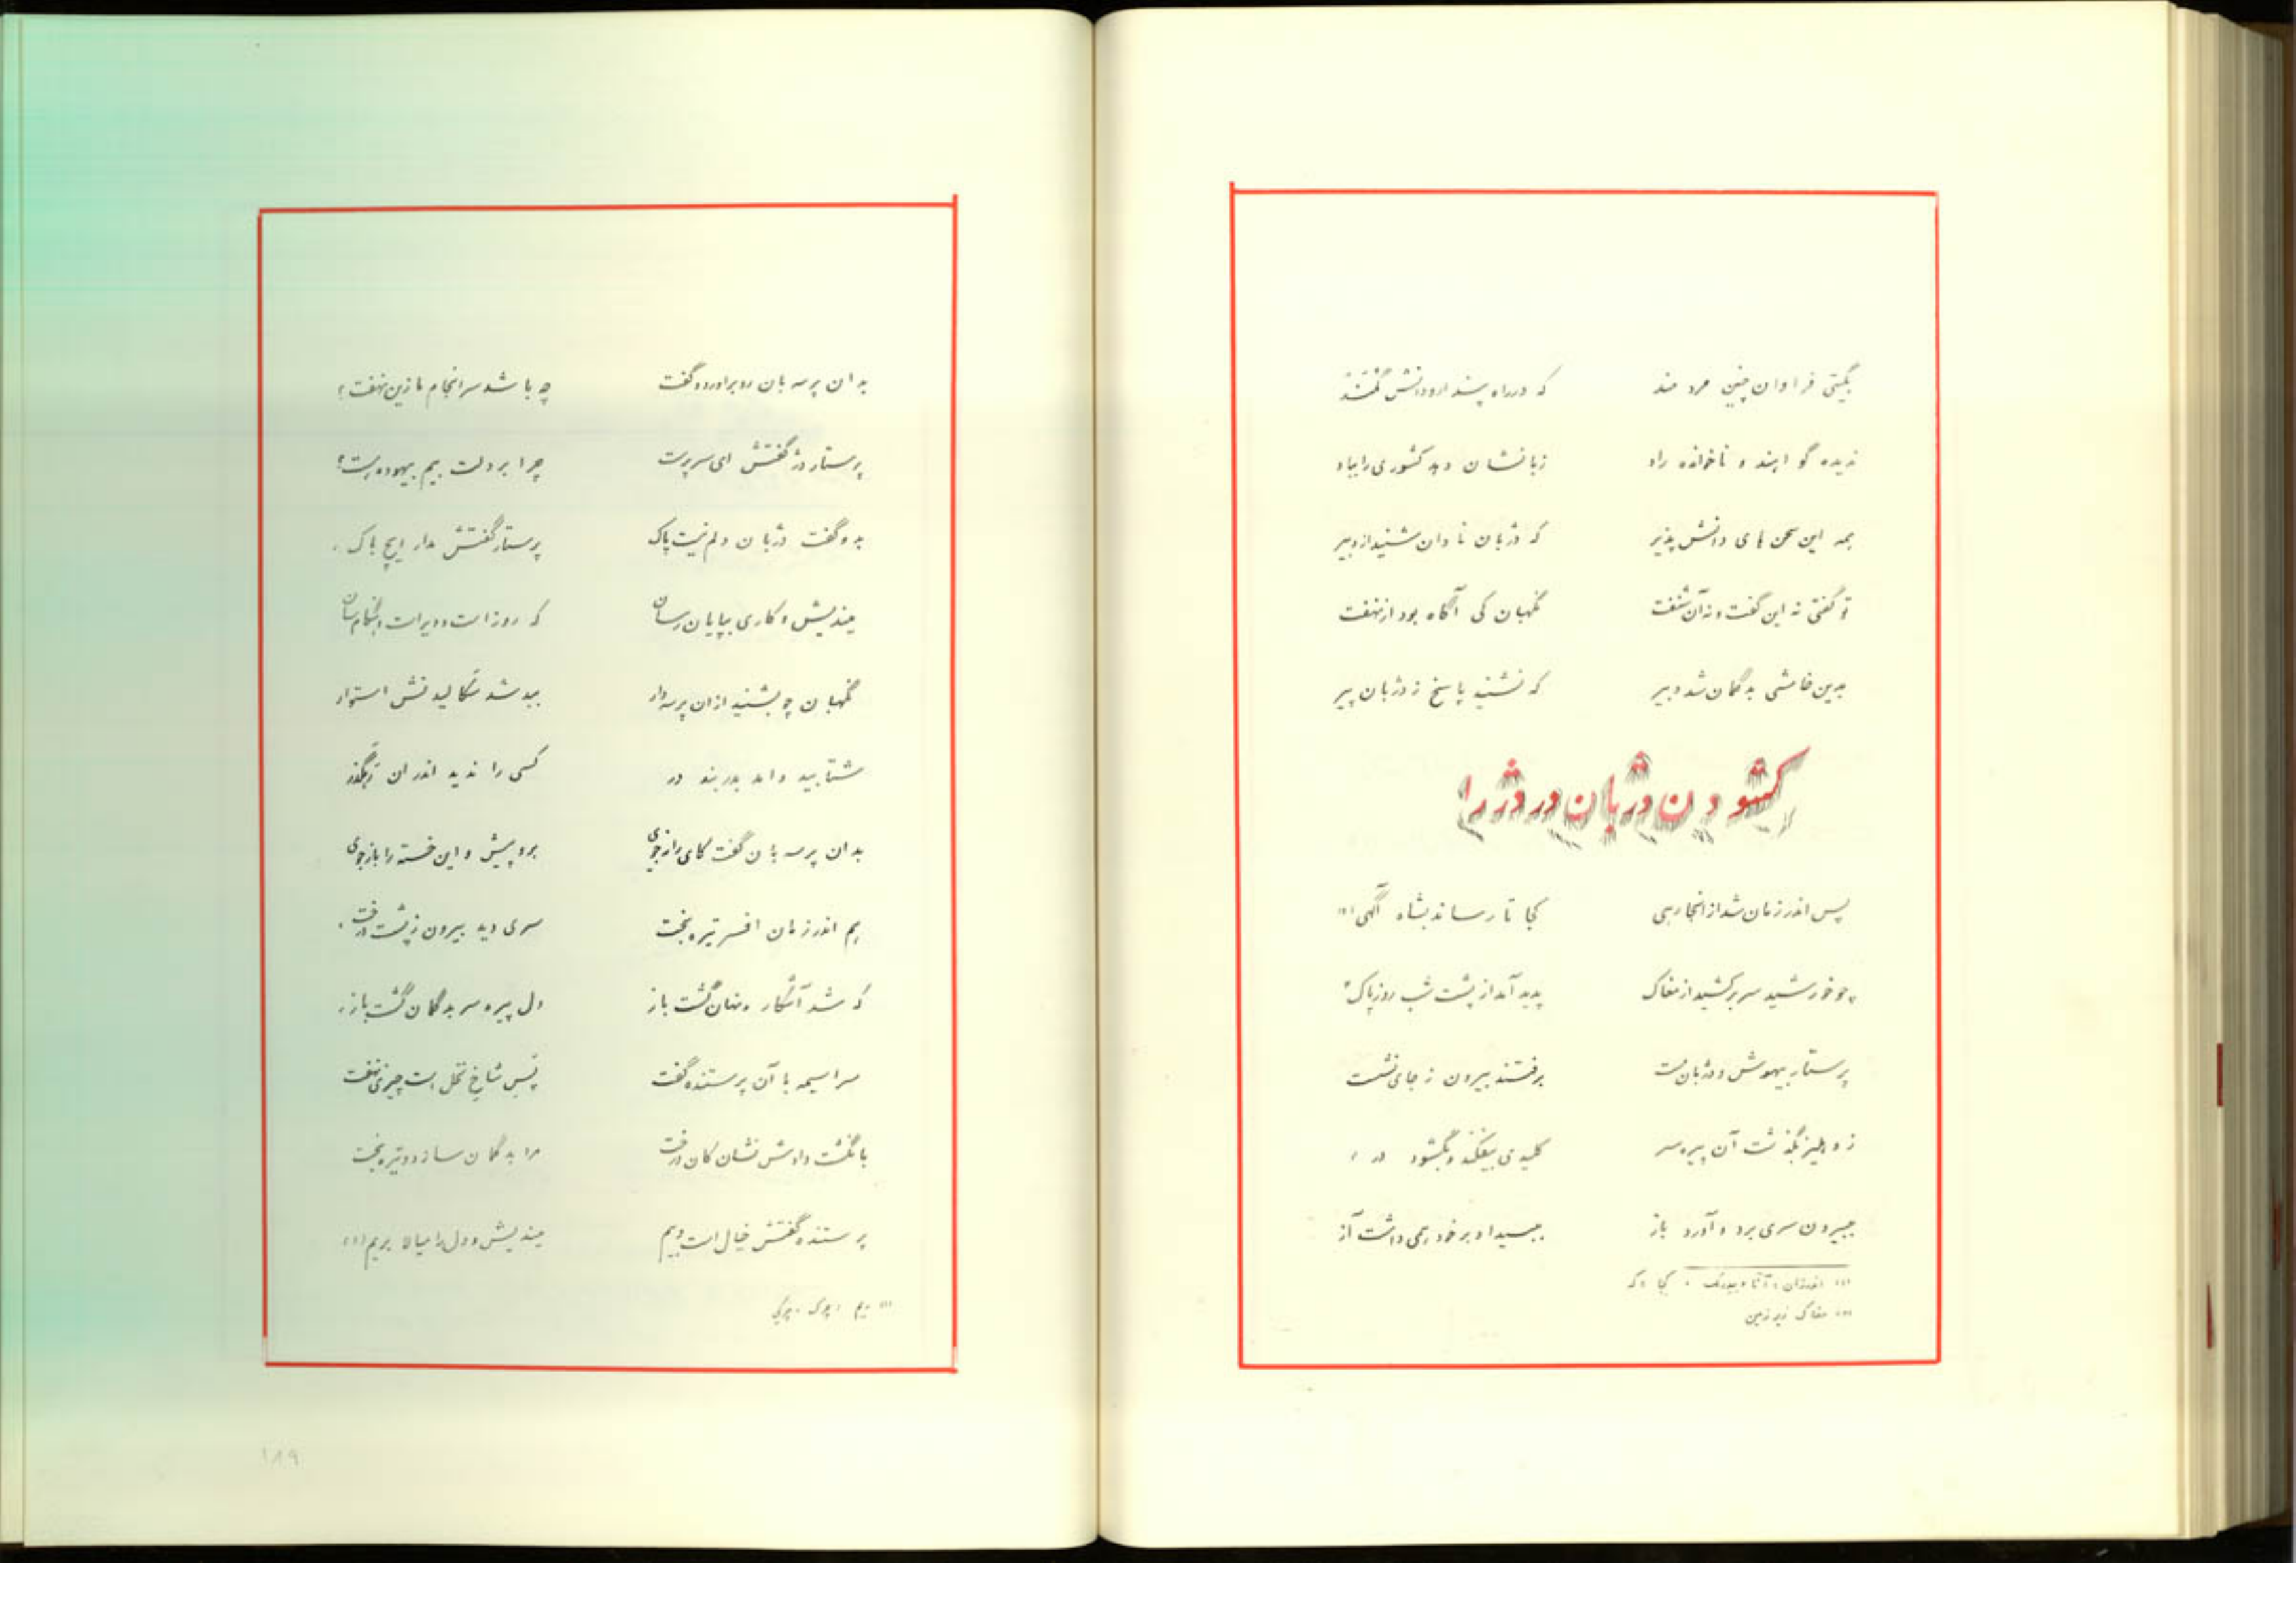 بگیتی فراوان چنین مرد مند که در راه پند ارودانش گمند
ندیده گو ایند و ناخوانده راد زبانشان دهد کشوری را بباد
همه این سخن های دانش پذیر که دژبان نادان شنید از دبیر
تو گفتی نه این گفت و نه آن شنفت نگهبان کی آگاه بود از نهفت
بدین خامشی بدگمان شد دبیر که نشنید پاسخ ز دژبان پیر
گشودن دژبان در دژ را
پس اندر زمان شد از آنجا رهی کجا تا رساند بشاه آگهی (۱)
چو خورشید سر برکشید از مغاک پدید آمد از پشت شب روز پاک ۲
پرستار بیهوش و دژبان مست برفتند بیرون ز جای نشست
ز دهلیز بگذشت آن پیره سر کلیدی بیفکند و بگشود در
ببیرون سری برد و آورد باز بپسیداو بر خود همی داشت آز
(۱) اندرزمان : آنا و بیدرنگ . کجا : که
(۲) مغاک زیر زمین
بدان پرسه بان رو برآورد و گفت چه باشد سرانجام ما زین نهفت ؟
پرستار دژ گفتش ای سرپرست چرا بر دلت بیم بیهوده است ؟
بدو گفت دژبان دلم نیست پاک پرستار گفتش مدار ایچ باک .
میندیش و کاری بپایان رسان که روز است و دیر است و هنگام سان
نگهبان چو بشنید از ان پرسه دار ببد شد سگالیدنش استوار
شتابید و امد بدربند در کسی را ندید اندر ان رهگذر
بدان پرسه بان گفت کای رازجوی برو پیش و این خسته را بازجوی
هم اندر زمان افسر تیره بخت سری دید بیرون ز پشت درخت .
که شد آشکار و نهان گشت باز دل پیره سر بدگمان گشت باز .
سراسیمه با آن پرستنده گفت پس شاخ نخل است چیزی نهفت
بانگشت دادش نشان کان درخت مرا بدگمان سازد و تیره بخت
پرستنده گفتش خیال است و بیم میندیش و دل را میالا بریم (۱)
(۱) ریم : چرک ، چرکی
۱۸۹